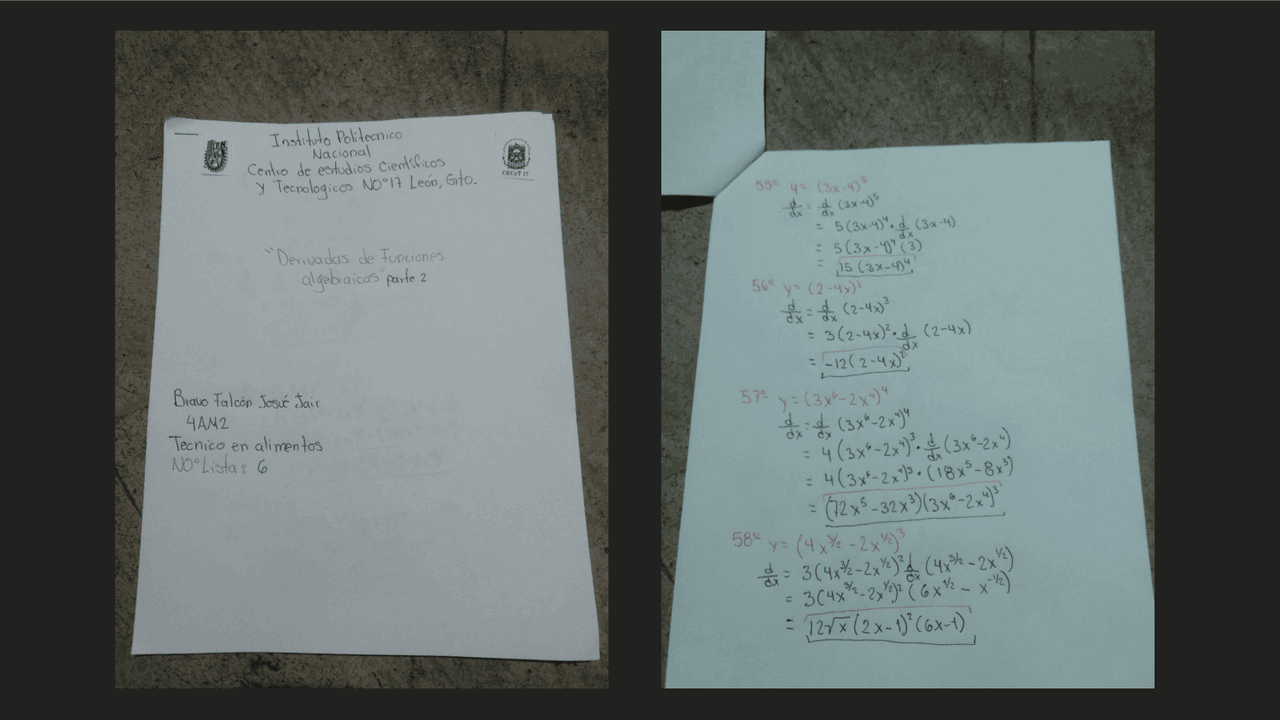 Instituto Politecnico
Nacional
Centro de estudios Científicos
y Tecnologicos NO°17 León, Gto.
CECyT 17
"Derivadas de Funciones
algebraicas" parte 2
Bravo Falcón Josué Jair
4AM2
Tecnico en alimentos
NO°Lista: 6
55° y = (3x-4)⁵
d/dx = d/dx (3x-4)⁵
= 5(3x-4)⁴ · d/dx (3x-4)
= 5(3x-4)⁴ (3)
= 15(3x-4)⁴
56° y = (2-4x)³
d/dx = d/dx (2-4x)³
= 3(2-4x)² · d/dx (2-4x)
= -12(2-4x)²
57° y = (3x⁶-2x⁴)⁴
d/dx = d/dx (3x⁶-2x⁴)⁴
= 4(3x⁶-2x⁴)³ · d/dx (3x⁶-2x⁴)
= 4(3x⁶-2x⁴)³ · (18x⁵-8x³)
= (72x⁵-32x³)(3x⁶-2x⁴)³
58° y = (4x^3/2 - 2x^1/2)³
d/dx = 3(4x^3/2 - 2x^1/2)² d/dx (4x^3/2 - 2x^1/2)
= 3(4x^3/2 - 2x^1/2)² (6x^1/2 - x^-1/2)
= 12√x (2x-1)² (6x-1)